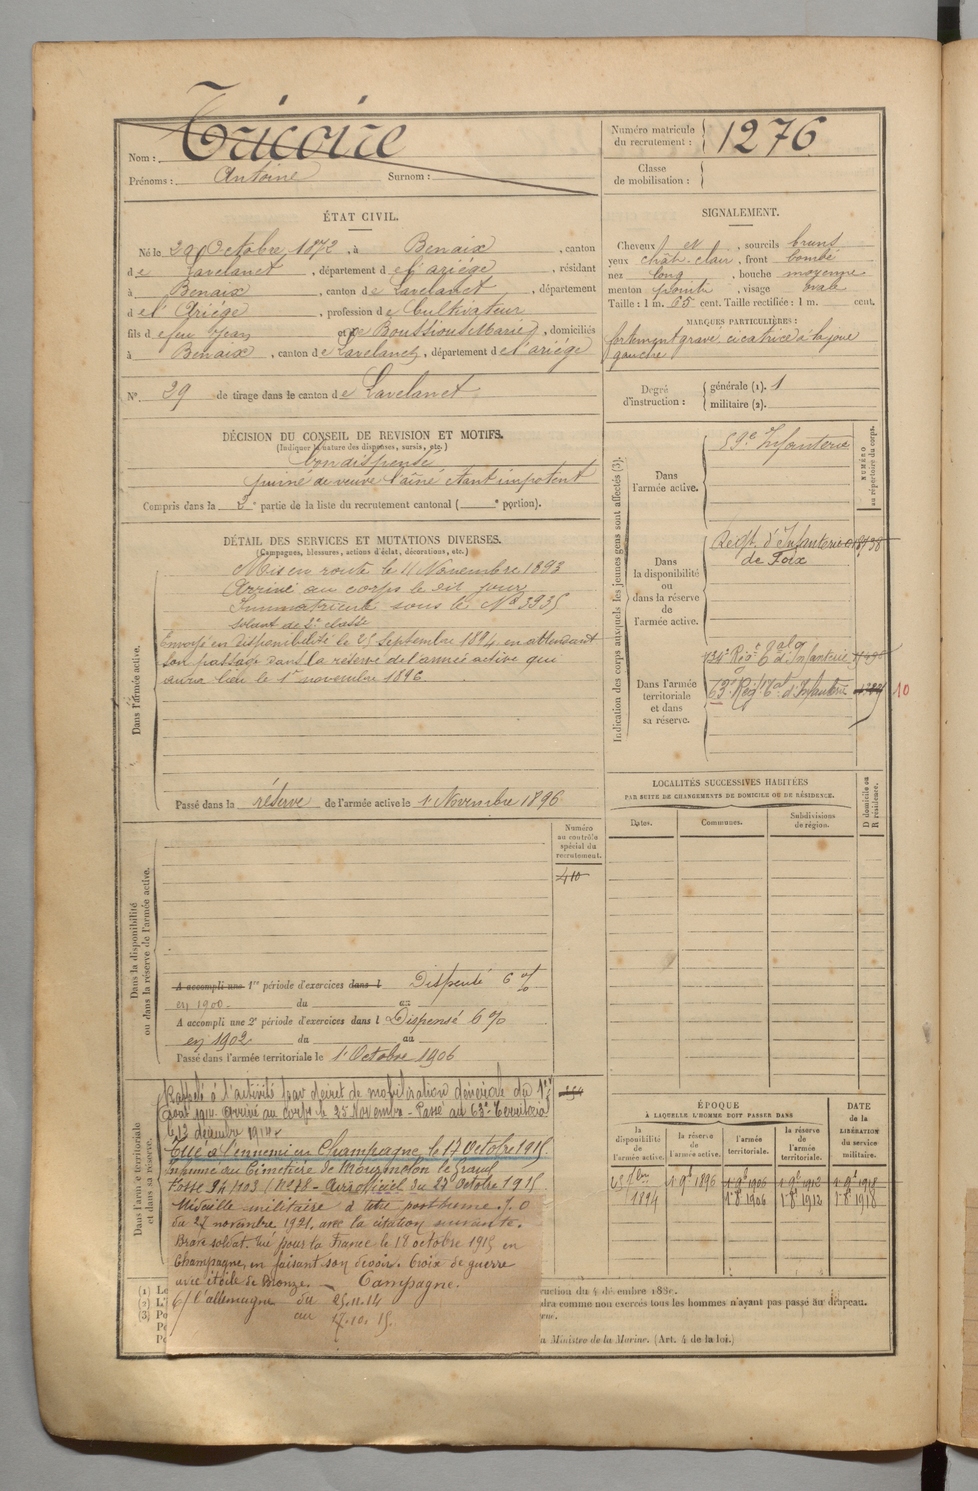 Nom : Tricoire
Prénoms : Antoine Surnom :
Numéro matricule
du recrutement : 1276
Classe
de mobilisation :
ÉTAT CIVIL.
Né le 29 Octobre 1872, à Benaix, canton
de Lavelanet, département de l'ariége, résidant
à Benaix, canton de Lavelanet, département
de l'Ariége, profession de Cultivateur
fils de feu Jean et de Boussioux Marie, domiciliés
à Benaix, canton de Lavelanet, département de l'ariége
N° 29 de tirage dans le canton de Lavelanet
SIGNALEMENT.
Cheveux et, sourcils bruns
yeux chât. clair, front bombé
nez long, bouche moyenne
menton pointu, visage ovale
Taille : 1 m. 65 cent. Taille rectifiée : 1 m. cent.
MARQUES PARTICULIÈRES :
fortement gravé, cicatrice à la joue
gauche
Degré
d'instruction :
générale (1). 1
militaire (2).
DÉCISION DU CONSEIL DE REVISION ET MOTIFS.
(Indiquer la nature des dispenses, sursis, etc.)
bon dispensé
puiné de veuve l'aîné étant impotent
Compris dans la 2e partie de la liste du recrutement cantonal ( e portion).
DÉTAIL DES SERVICES ET MUTATIONS DIVERSES.
(Campagnes, blessures, actions d'éclat, décorations, etc.)
Dans l'armée active.
Mis en route le 11 Novembre 1893
Arrivé au corps le dit jour
Immatriculé sous le No 3935
soldat de 2e classe
Envoyé en disponibilité le 25 Septembre 1894 en attendant
son passage dans la réserve de l'armée active qui
aura lieu le 1er novembre 1896
Passé dans la réserve de l'armée active le 1er Novembre 1896
Indication des corps auxquels les jeunes gens sont affectés (3).
NUMÉRO
au répertoire du corps.
Dans
l'armée active.
59e Infanterie
Dans
la disponibilité
ou
dans la réserve
de
l'armée active.
Regt. d'Infanterie
de Foix
Dans l'armée
territoriale
et dans
sa réserve.
134e Régt d'Infanterie
63e Régt Tal d'Infanterie
10
LOCALITÉS SUCCESSIVES HABITÉES
PAR SUITE DE CHANGEMENTS DE DOMICILE OU DE RÉSIDENCE.
D domicile ou
R résidence.
Dates.
Communes.
Subdivisions
de région.
Dans la disponibilité
ou dans la réserve de l'armée active.
Numéro
au contrôle
spécial du
recrutement.
410
A accompli une 1re période d'exercices dans l Dispensé 6 %
en 1900 du au
A accompli une 2e période d'exercices dans l Dispensé 6 %
en 1902 du au
Passé dans l'armée territoriale le 1er Octobre 1906
Dans l'armée territoriale
et dans sa réserve.
Rappelé à l'activité par décret de mobilisation générale du 1er
août 1914. Arrivé au corps le 25 Novembre - Passé au 63e Territorial
le 13 décembre 1914
Tué à l'ennemi en Champagne le 17 Octobre 1915.
Inhumé au Cimetière de Mourmelon le Grand
Fosse - Avis Officiel du 27 Octobre 1915
Médaille militaire à titre posthume. J.O
du 27 novembre 1921, avec la citation suivante.
Brave soldat. Tué pour la France le 18 octobre 1915 en
Champagne, en faisant son devoir. Croix de guerre
avec étoile de Bronze. - Campagne.
C/ l'allemagne du 25.11.14
au 17.10.15.
ÉPOQUE
À LAQUELLE L'HOMME DOIT PASSER DANS
DATE
de la
LIBÉRATION
du service
militaire.
la
disponibilité
de
l'armée active.
la réserve
de
l'armée active.
l'armée
territoriale.
la réserve
de
l'armée
territoriale.
1 9b 1896 1 9b 1906 1 9b 1912 1 9b 1918
1894 1 8b 1906 1 8b 1912 1 8b 1918
(1)
(2)
(3)
ruction du 4 décembre 1889.
dra comme non exercés tous les hommes n'ayant pas passé au drapeau.
Ministre de la Marine. (Art. 4 de la loi.)